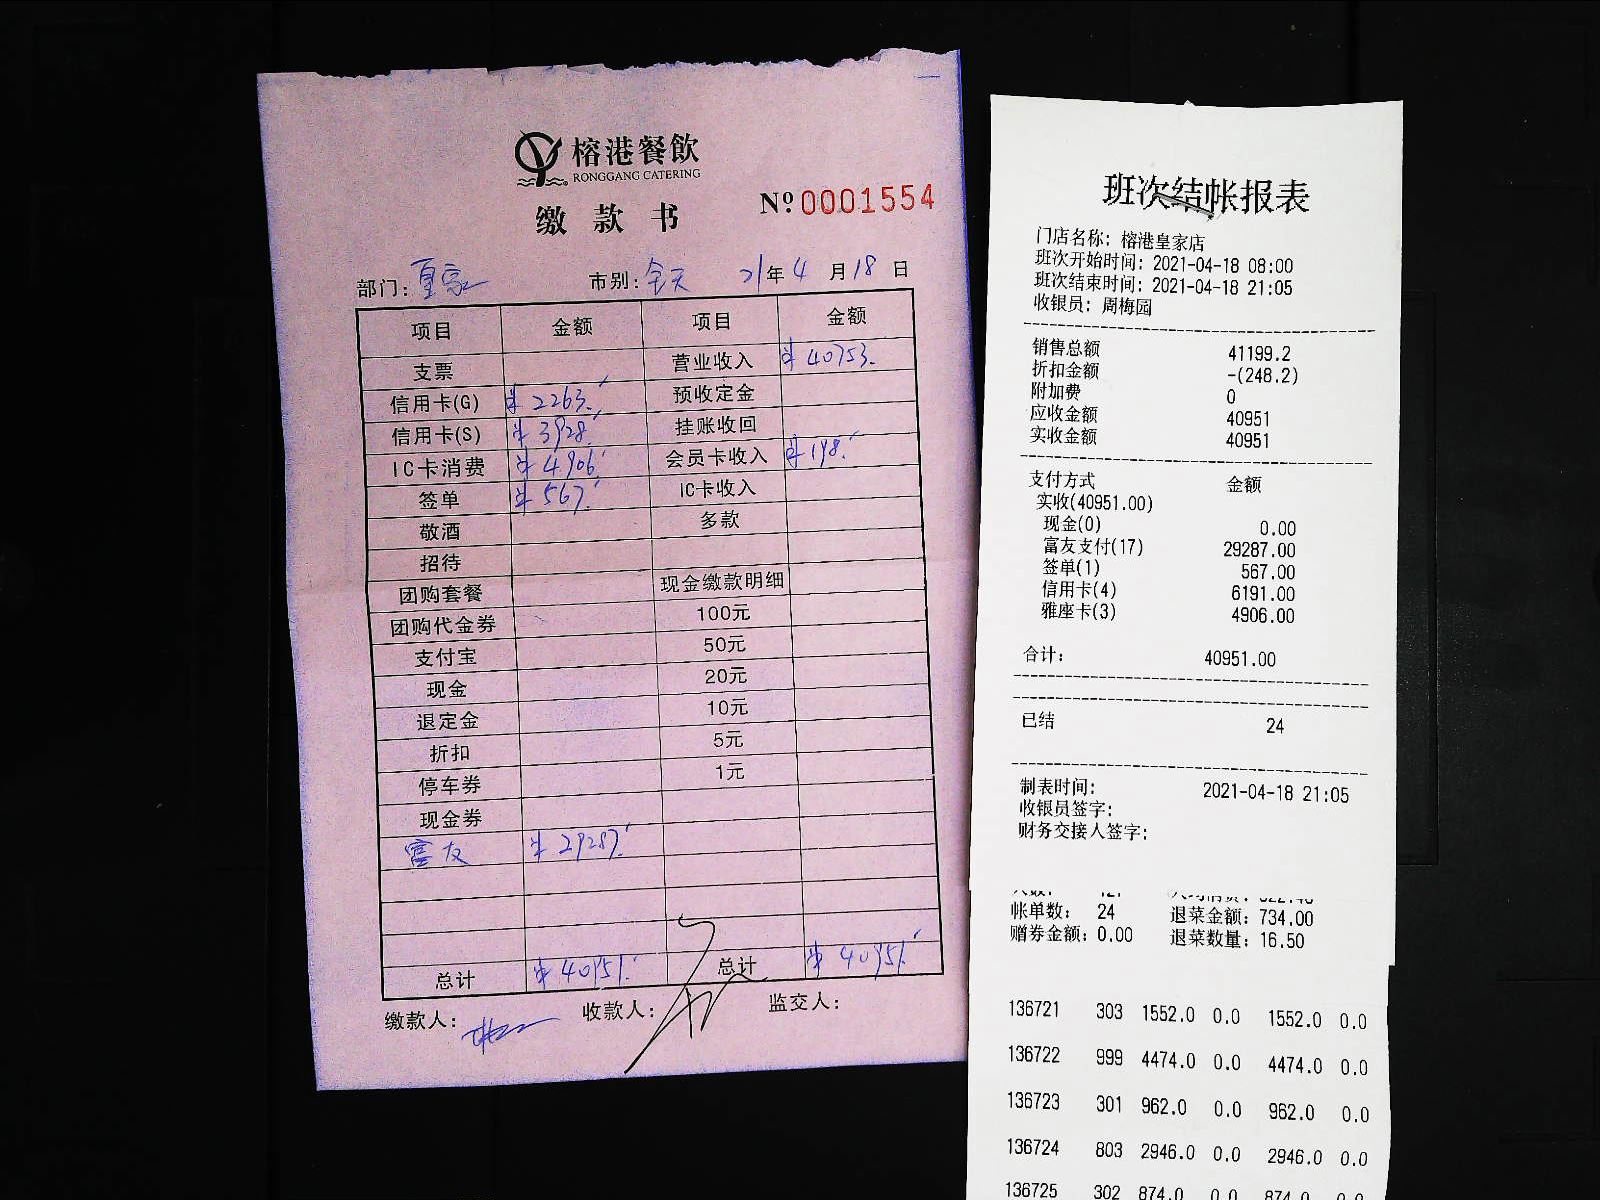 榕港餐飲
RONGGANG CATERING
缴款书
№ 0001554
部门: 皇家 市别: 全天 21年4月18日
项目 金额 项目 金额
支票 营业收入 ¥40753.
信用卡(G) ¥2263. 预收定金
信用卡(S) ¥3928. 挂账收回
IC卡消费 ¥4906. 会员卡收入 ¥198.
签单 ¥567. IC卡收入
敬酒 多款
招待
团购套餐 现金缴款明细
团购代金券 100元
支付宝 50元
现金 20元
退定金 10元
折扣 5元
停车券 1元
现金券
富友 ¥29287.
总计 ¥40951. 总计 ¥40951.
缴款人: 收款人: 监交人:
班次结帐报表
门店名称: 榕港皇家店
班次开始时间: 2021-04-18 08:00
班次结束时间: 2021-04-18 21:05
收银员: 周梅园
销售总额 41199.2
折扣金额 -(248.2)
附加费 0
应收金额 40951
实收金额 40951
支付方式 金额
实收(40951.00)
现金(0) 0.00
富友支付(17) 29287.00
签单(1) 567.00
信用卡(4) 6191.00
雅座卡(3) 4906.00
合计: 40951.00
已结 24
制表时间: 2021-04-18 21:05
收银员签字:
财务交接人签字:
帐单数: 24 退菜金额: 734.00
赠券金额: 0.00 退菜数量: 16.50
136721 303 1552.0 0.0 1552.0 0.0
136722 999 4474.0 0.0 4474.0 0.0
136723 301 962.0 0.0 962.0 0.0
136724 803 2946.0 0.0 2946.0 0.0
136725 302 874.0 0.0 874.0 0.0